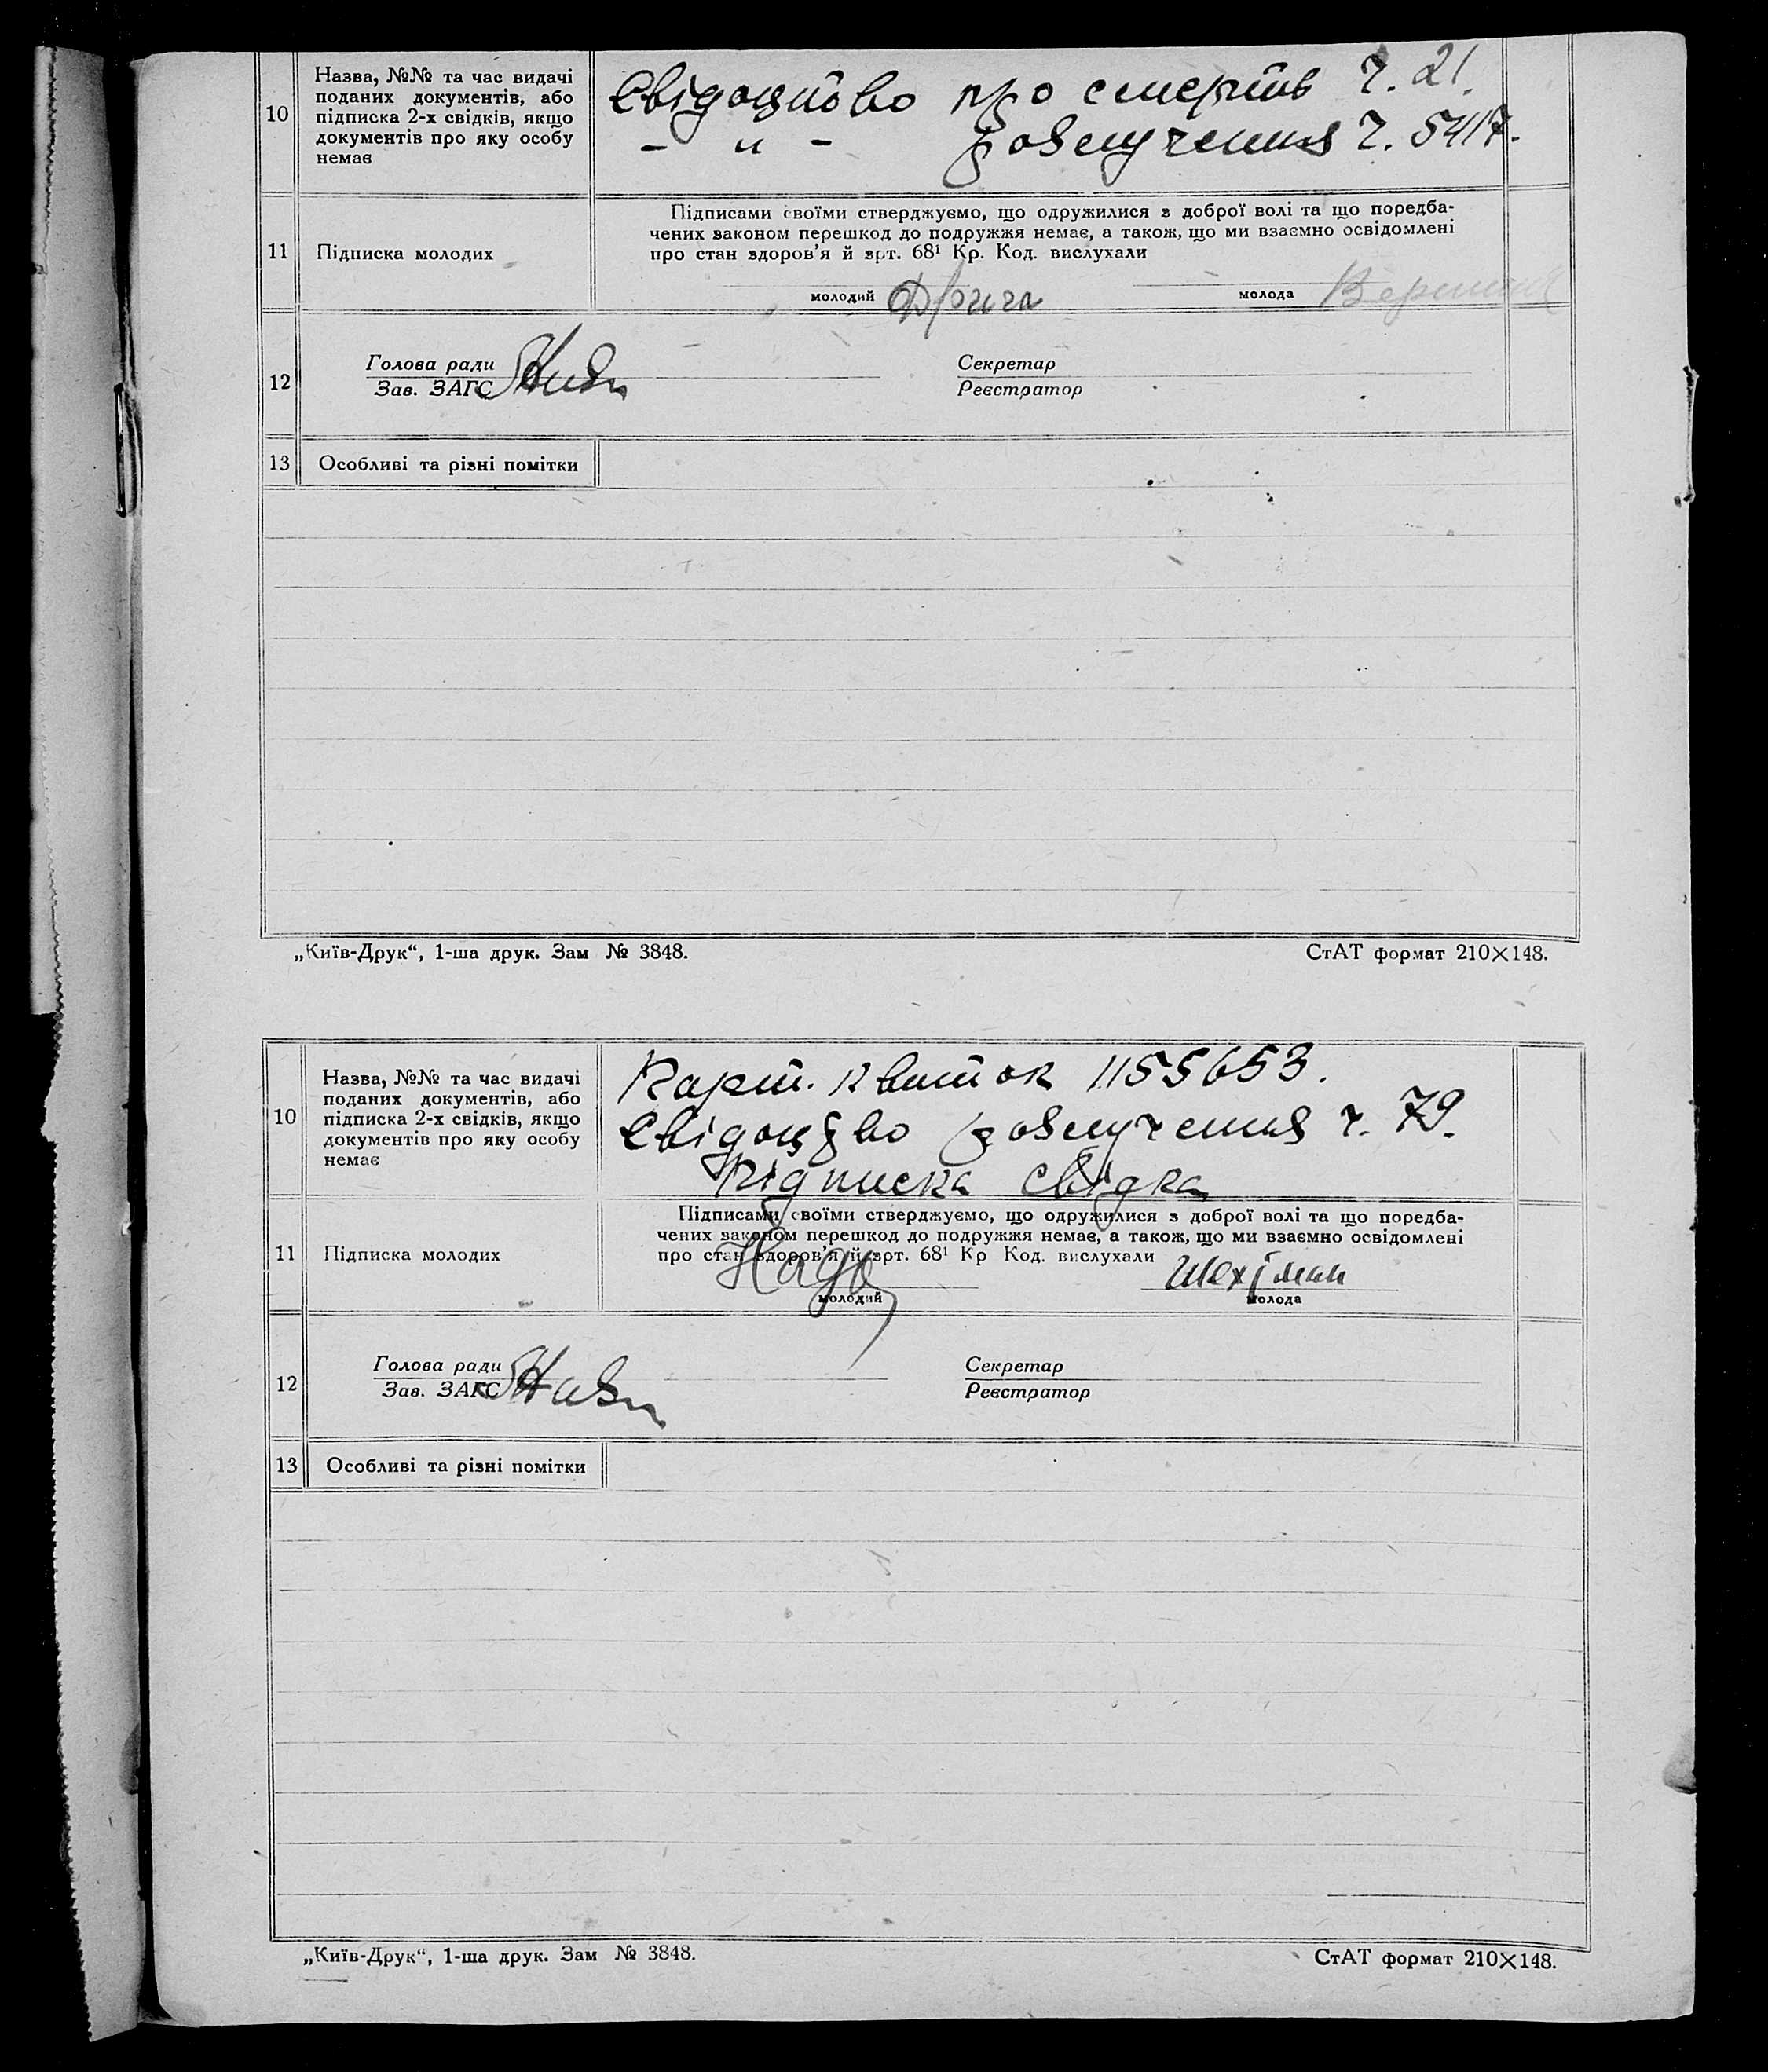 10
Назва, №№ та час видачі
поданих документів, або
підписка 2-х свідків, якщо
документів про яку особу
немає
Свідоцтво про смерть ч. 21.
— „ — розлучення ч. 5417.
11
Підписка молодих
Підписами своїми стверджуємо, що одружилися з доброї волі та що поредба-
чених законом перешкод до подружжя немає, а також, що ми взаємно освідомлені
про стан здоров'я й арт. 68¹ Кр. Код. вислухали
молодий
молода
12
Голова ради
Зав. ЗАГС
Секретар
Реєстратор
13
Особливі та різні помітки
„Київ-Друк“, 1-ша друк. Зам № 3848.
СтАТ формат 210×148.
10
Назва, №№ та час видачі
поданих документів, або
підписка 2-х свідків, якщо
документів про яку особу
немає
Парт. квиток 1155653.
Свідоцтво розлучення ч. 79.
Підписка свідка
11
Підписка молодих
Підписами своїми стверджуємо, що одружилися з доброї волі та що поредба-
чених законом перешкод до подружжя немає, а також, що ми взаємно освідомлені
про стан здоров'я й арт. 68¹ Кр Код. вислухали
молодий
молода
12
Голова ради
Зав. ЗАГС
Секретар
Реєстратор
13
Особливі та різні помітки
„Київ-Друк“, 1-ша друк. Зам № 3848.
СтАТ формат 210×148.